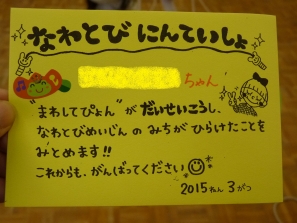 なわとび にんていしょ
ちゃん
"まわしてぴょん"が だいせいこうし、
なわとびめいじんの みちが ひらけたことを
みとめます!!
これからも、がんばってください
2015ねん 3がつ